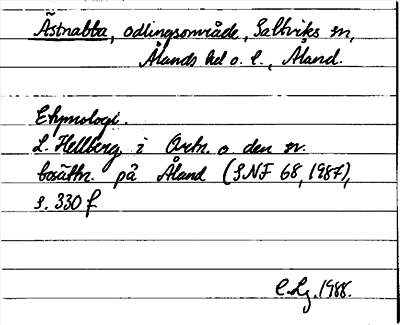 Ästnabba, odlingsområde, Saltviks sn,
Ålands hd o. l., Åland.
Etymologi.
L. Hellberg i Ortn. o den sv.
bosättn. på Åland (SNF 68, 1987),
s. 330 f
C.Lg. 1988.